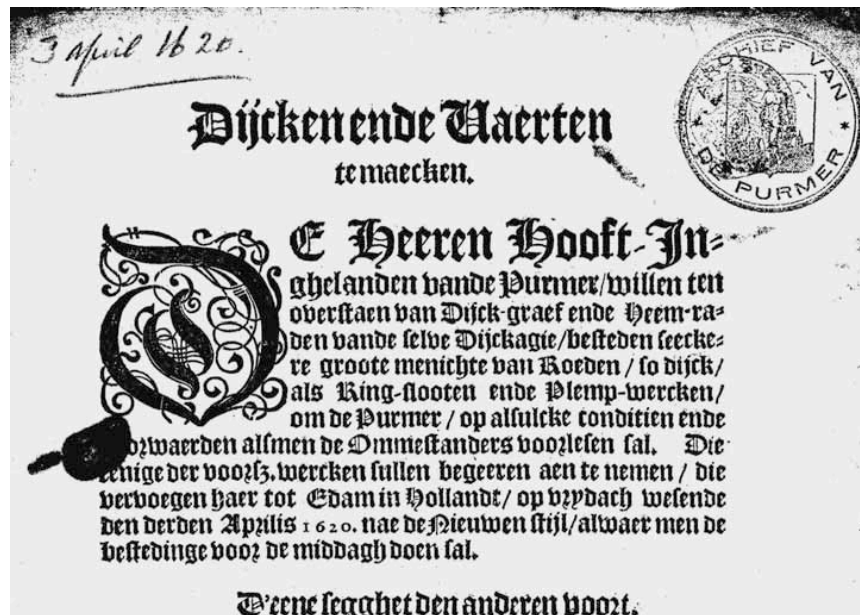 3 April 1620.
ARCHIEF VAN
DE PURMER
Dijcken ende Vaerten
te maecken.
DE Heeren Hooft-In-
ghelanden vande Purmer/willen ten
overstaen van Dijck-graef ende Heem-ra-
den vande selve Dijckagie/besteden seecke-
re groote menichte van Roeden / so dijck/
als Ring-slooten ende Plemp-wercken/
om de Purmer / op alsulcke conditien ende
voorwaerden alsmen de Ommestanders voorlesen sal. Die
eenige der voorsz. wercken sullen begeeren aen te nemen / die
vervoegen haer tot Edam in Hollandt/ op vrydach wesende
den derden Aprilis 1620. nae de Nieuwen stijl/alwaer men de
bestedinge voor de middagh doen sal.
D'eene segghet den anderen voort.